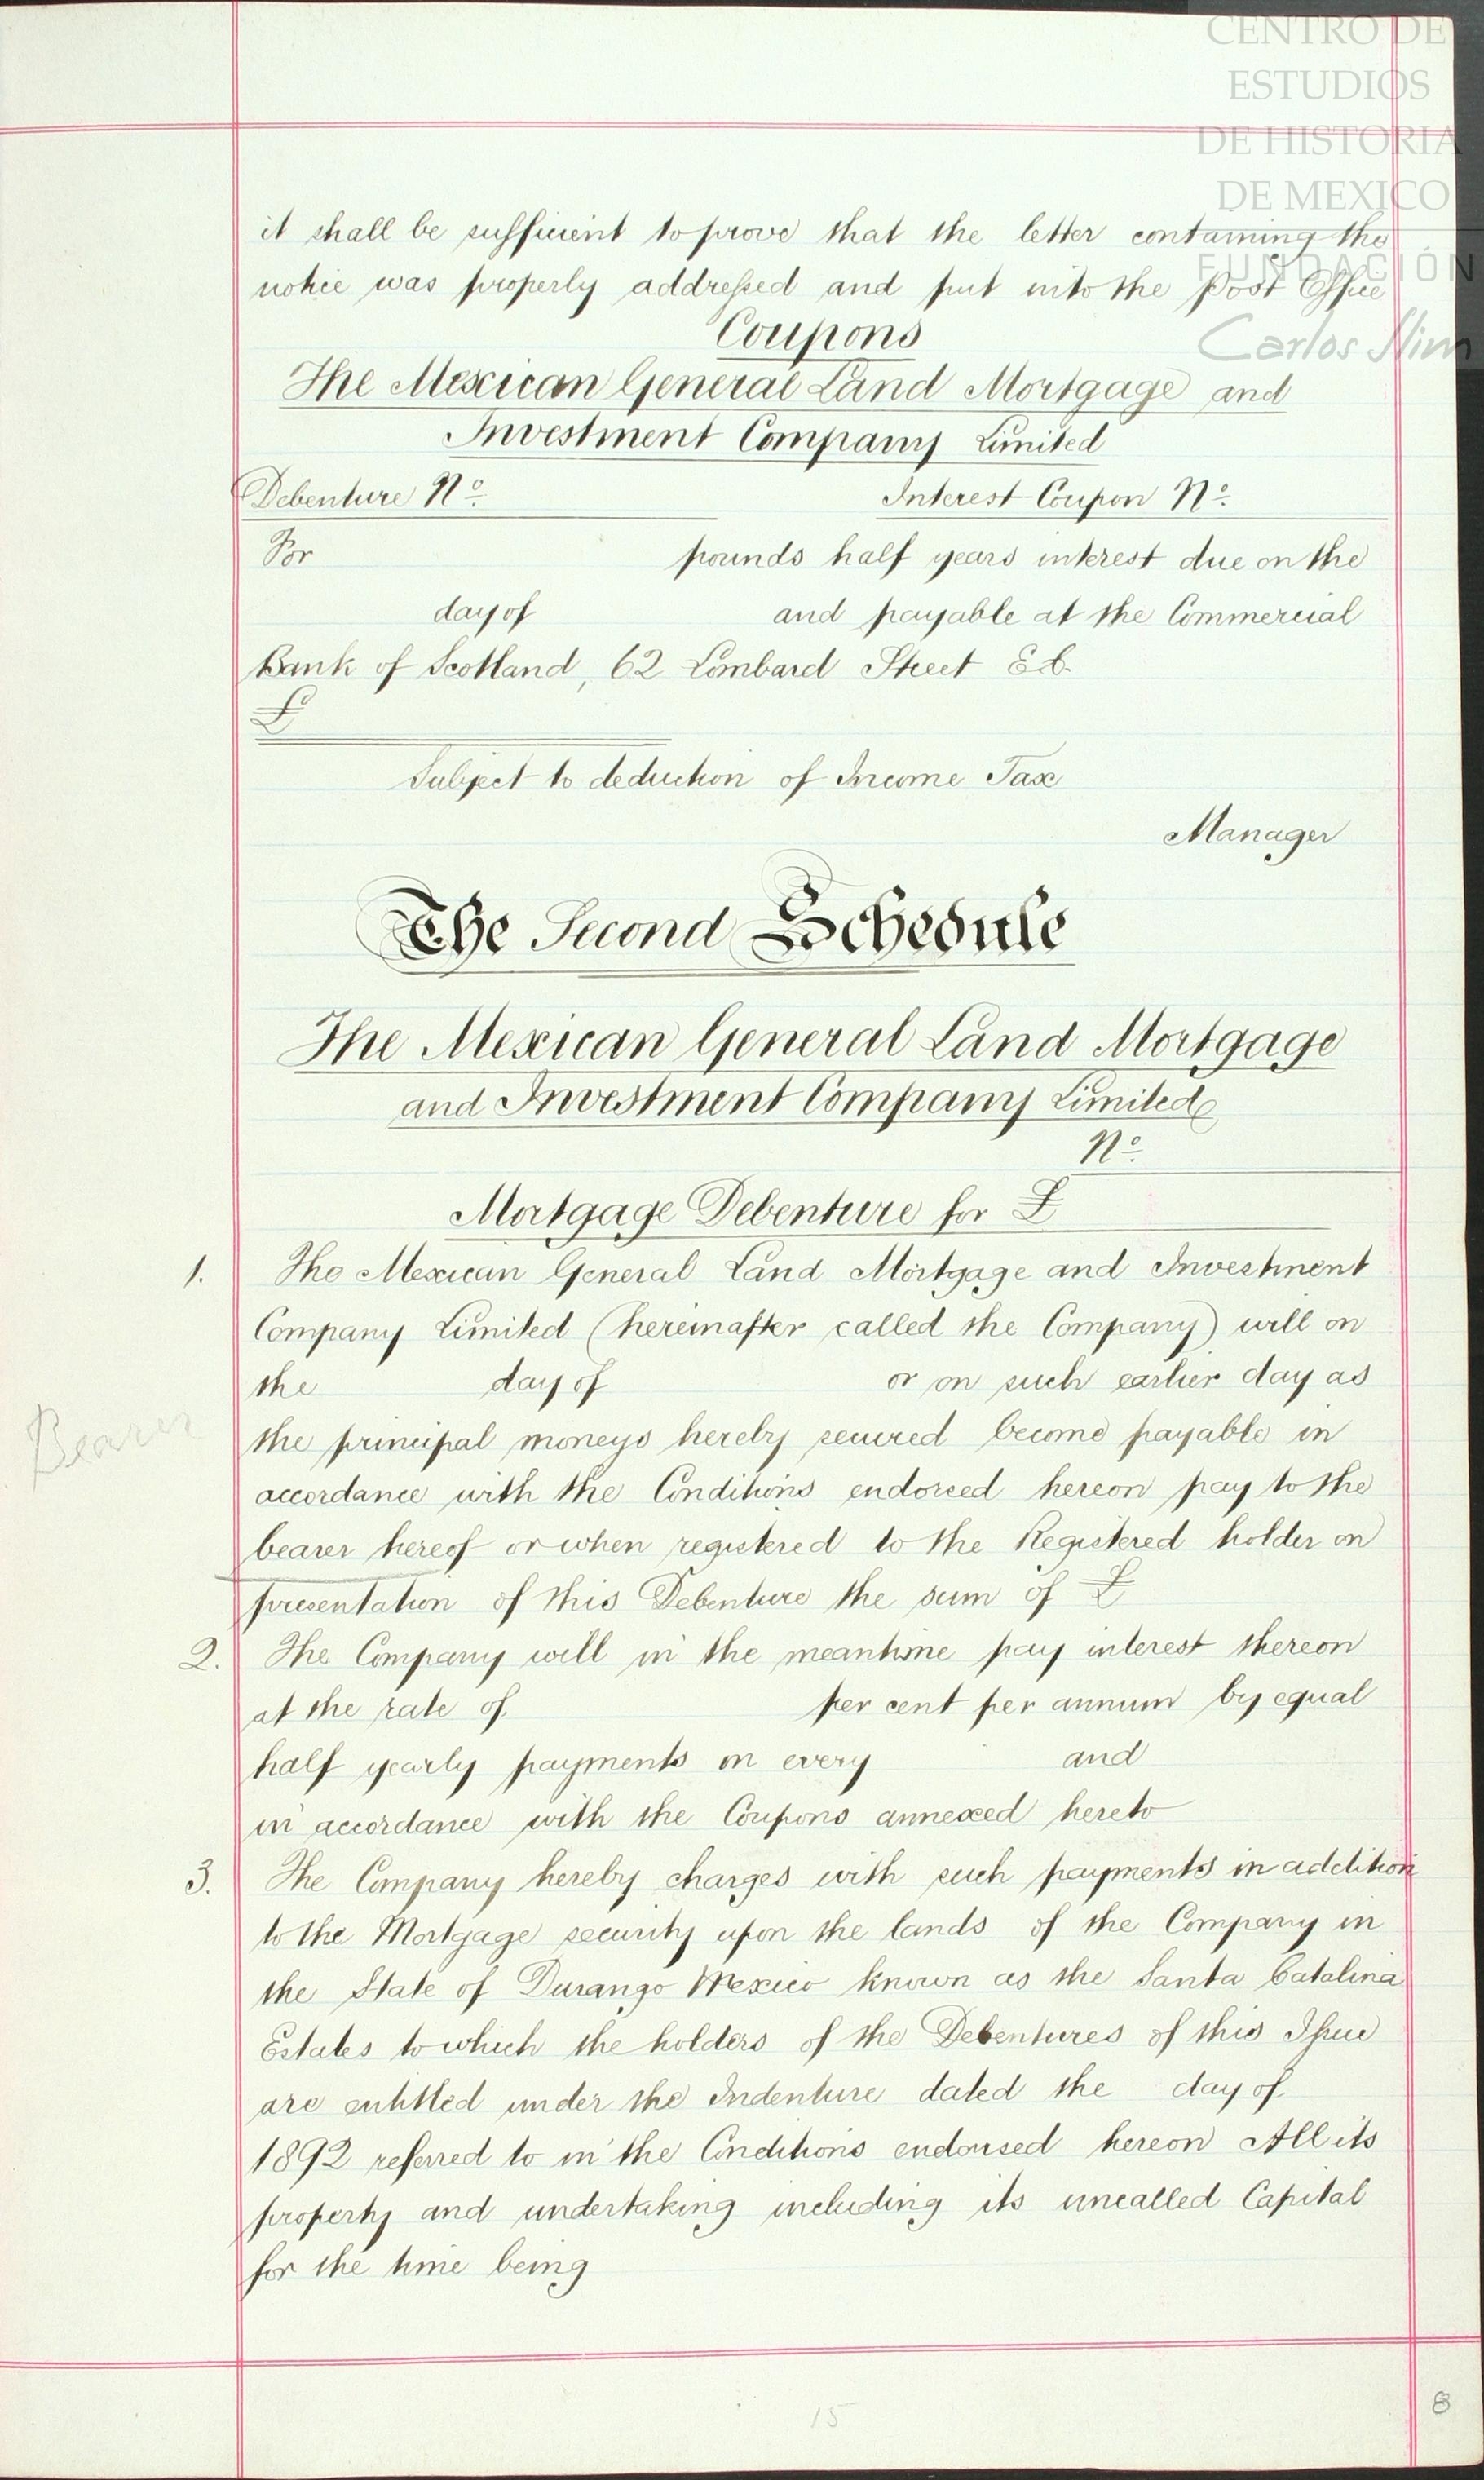 CENTRO DE
ESTUDIOS
DE HISTORIA
DE MEXICO
FUNDACIÓN
Carlos Slim
it shall be sufficient to prove that the letter containing the
notice was properly addressed and put into the Post Office
Coupons
The Mexican General Land Mortgage and
Investment Company Limited
Debenture No. Interest Coupon No.
For pounds half years interest due on the
day of and payable at the Commercial
Bank of Scotland, 62 Lombard Street E.C.
£
Subject to deduction of Income Tax
Manager
The Second Schedule
The Mexican General Land Mortgage
and Investment Company Limited
No.
Mortgage Debenture for £
1. The Mexican General Land Mortgage and Investment
Company Limited (hereinafter called the Company) will on
the day of or on such earlier day as
Bearer
the principal moneys hereby secured become payable in
accordance with the Conditions endorsed hereon pay to the
bearer hereof or when registered to the Registered holder on
presentation of this Debenture the sum of £
2. The Company will in the meantime pay interest thereon
at the rate of per cent per annum by equal
half yearly payments on every and
in accordance with the Coupons annexed hereto
3. The Company hereby charges with such payments in addition
to the Mortgage security upon the lands of the Company in
the State of Durango Mexico known as the Santa Catalina
Estates to which the holders of the Debentures of this Issue
are entitled under the Indenture dated the day of
1892 referred to in the Conditions endorsed hereon All its
property and undertaking including its uncalled Capital
for the time being
15
8